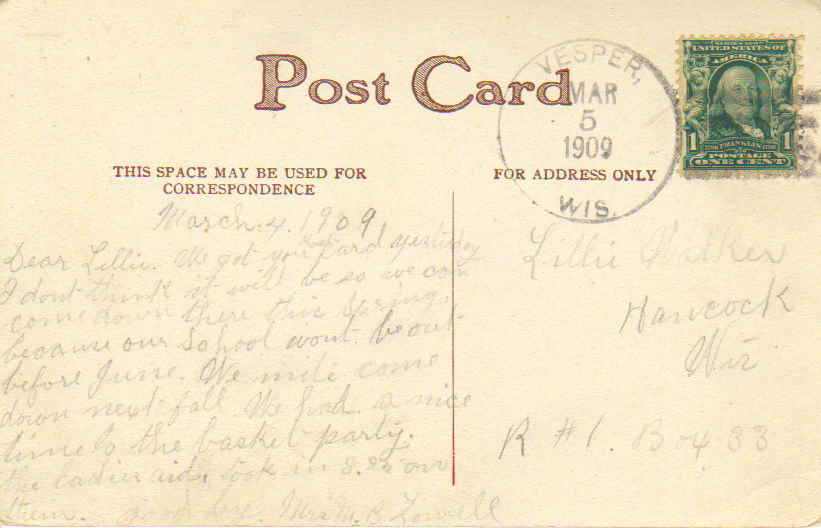 Post Card
VESPER,
MAR
5
1909
WIS.
SERIES 1902
UNITED STATES OF
AMERICA
1 1
FRANKLIN
POSTAGE
ONE CENT
THIS SPACE MAY BE USED FOR
CORRESPONDENCE
FOR ADDRESS ONLY
March. 4. 1909,
Dear Lillie. We got your card yesterday
I dont think it will be so we can
come down there this Spring.
because our School wont be out
before June. We come
down next fall We had a nice
time to the basket party.
the ladies aid took in on
them. good bye. Mrs M. B. Lowell
Lillie Walker
Hancock
Wis
R # 1. Box 33